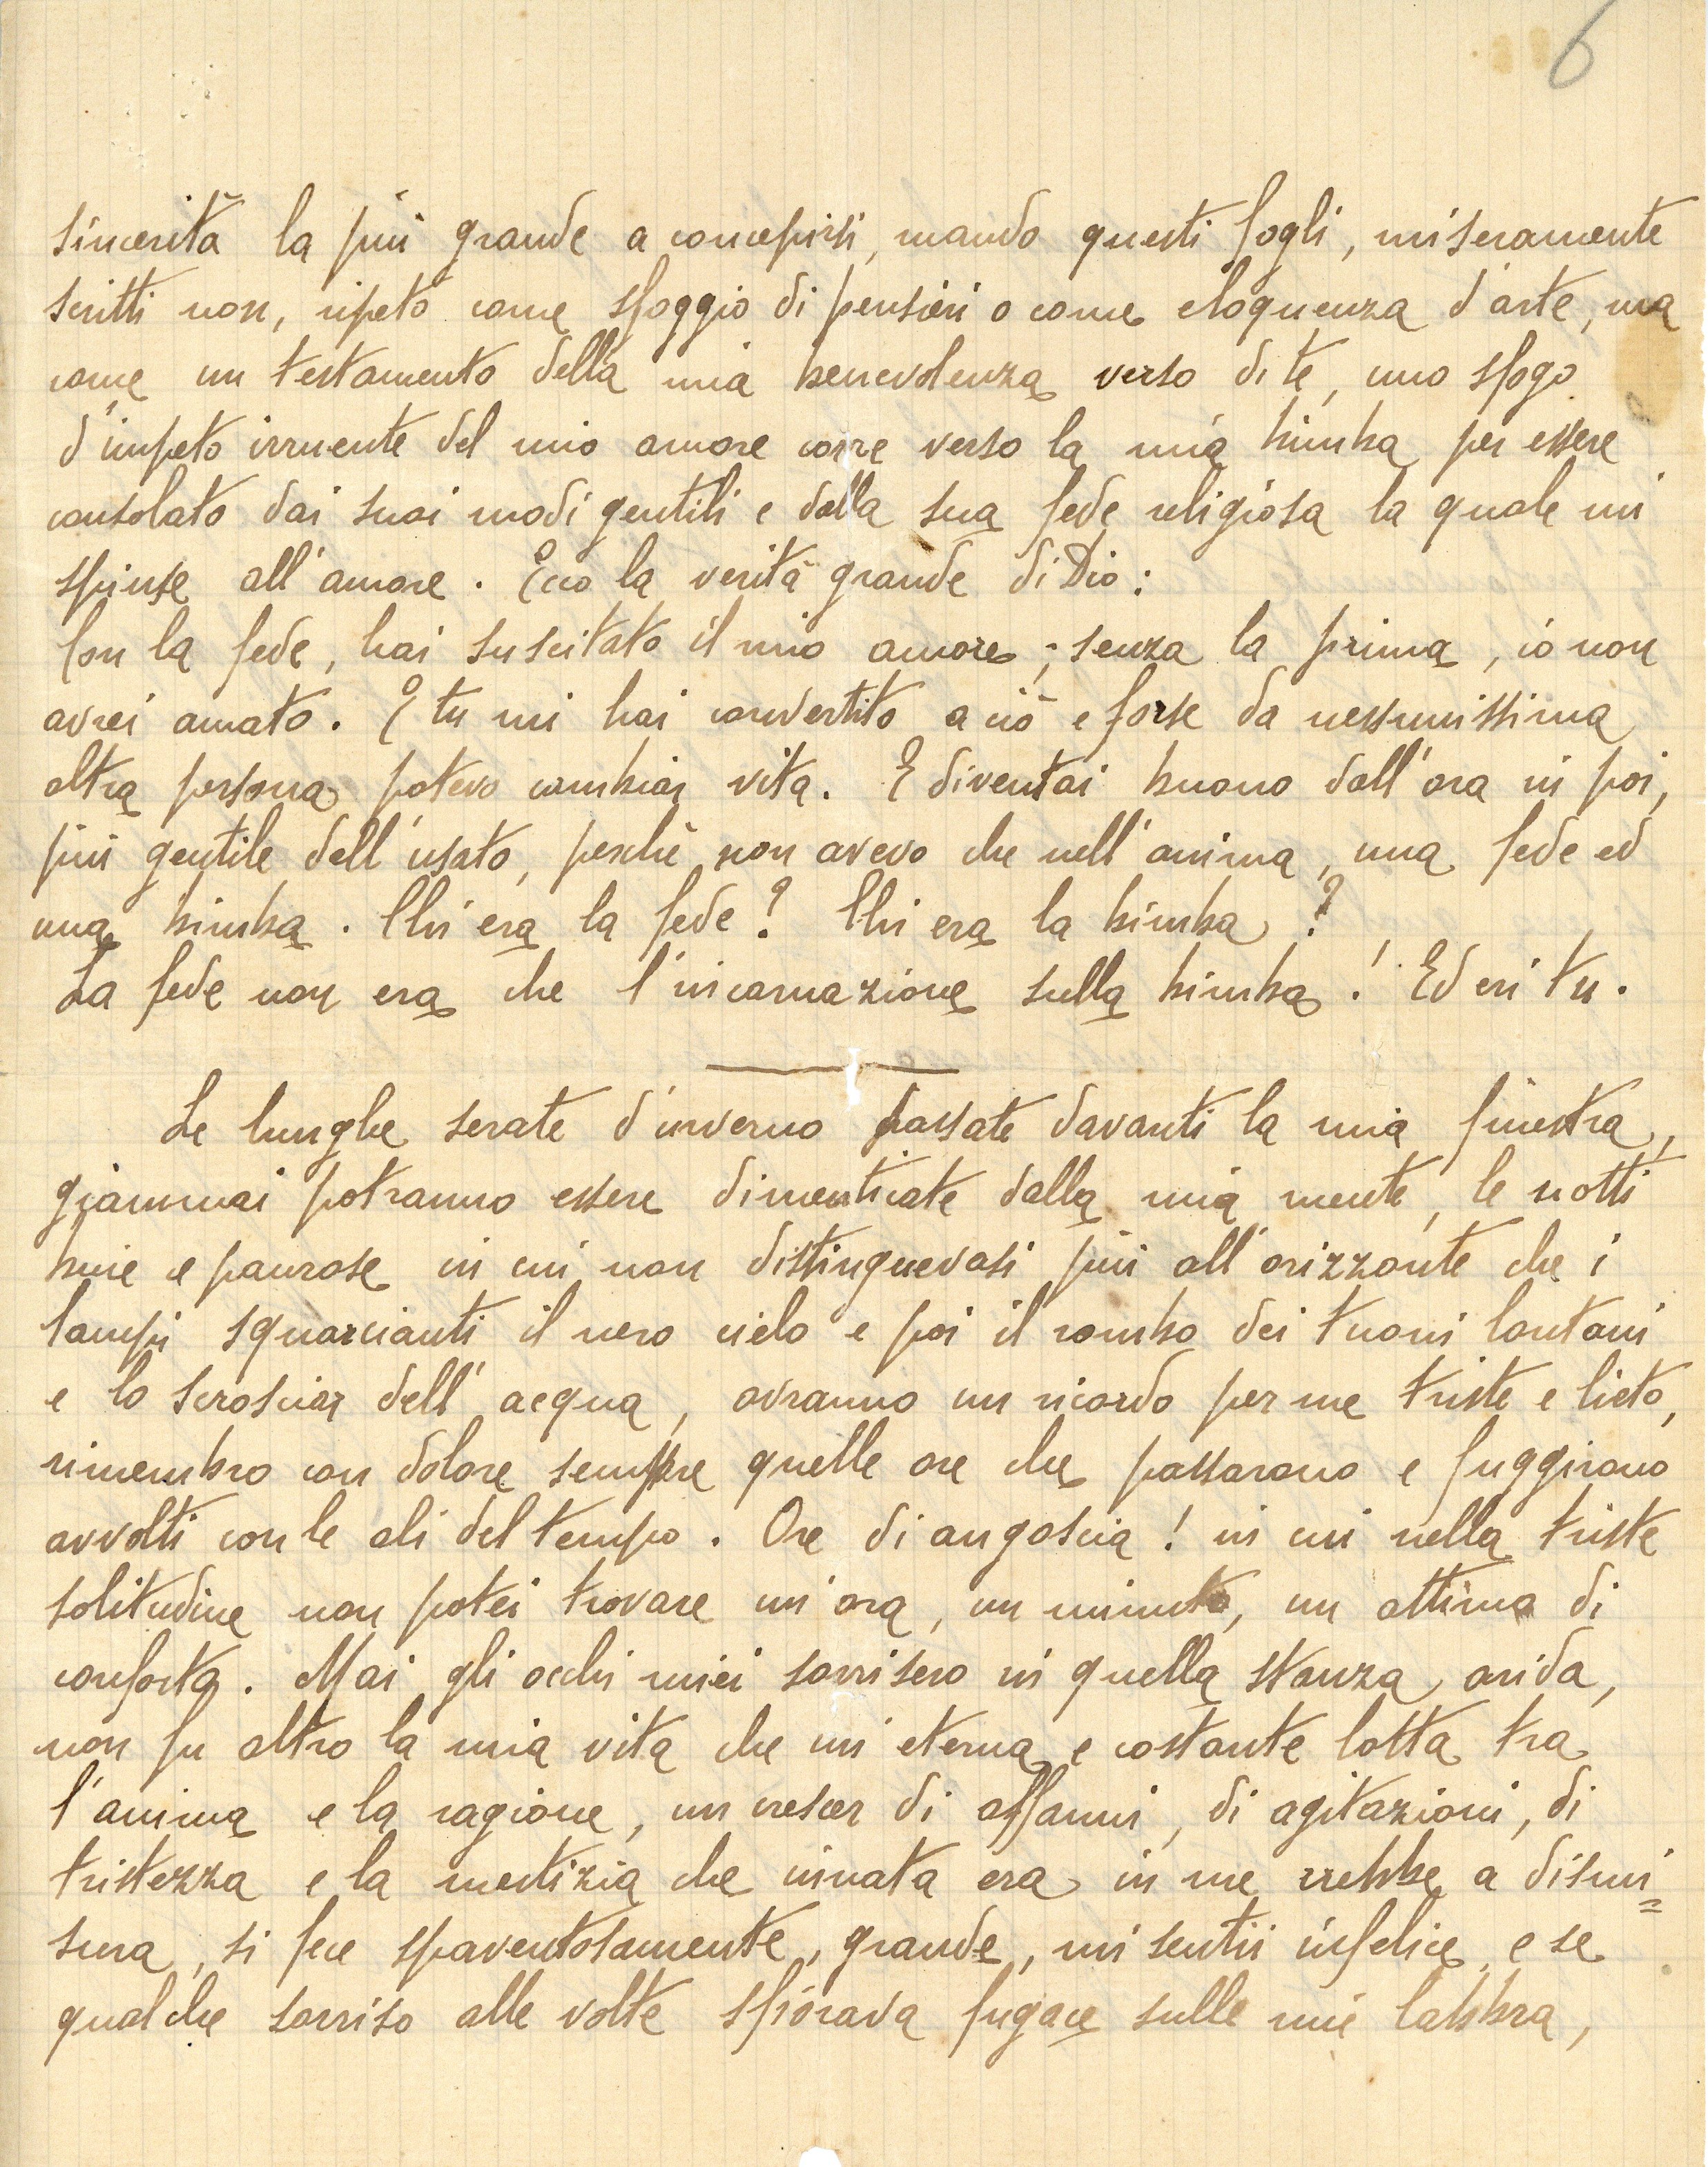 6
sincerità la più grande a concepirsi, mando questi fogli, miseramente
scritti non, ripeto come sfoggio di pensieri o come eloquenza d'arte, ma
come un testamento della mia benevolenza verso di te, uno sfogo
d'impeto irruente del mio amore corre verso la mia bimba per essere
consolato dai suoi modi gentili e dalla sua fede religiosa la quale mi
spinse all'amore. Ecco la verità grande di Dio:
Con la fede, hai suscitato il mio amore; senza la prima, io non
avrei amato. E tu mi hai convertito a ciò e forse da nessunissima
altra persona potevo cambiar vita. E diventai buono dall'ora in poi,
più gentile dell'usato, perchè non avevo che nell'anima, una fede ed
una bimba. Chi era la fede? Chi era la bimba?
La fede non era che l'incarnazione sulla bimba! Ed eri tu.
Le lunghe serate d'inverno passate davanti la mia finestra,
giammai potranno essere dimenticate dalla mia mente, le notti
buie e paurose in cui non distinguevasi più all'orizzonte che i
lampi squarcianti il nero cielo e poi il rombo dei tuoni lontani
e lo scrosciar dell'acqua, avranno un ricordo per me triste e lieto,
rimembro con dolore sempre quelle ore che passarono e fuggirono
avvolti con le ali del tempo. Ore di angoscia! in cui nella triste
solitudine non potei trovare un'ora, un minuto, un attimo di
conforto. Mai gli occhi miei sorrisero in quella stanza arida,
non fu altro la mia vita che un'eterna e costante lotta tra
l'anima e la ragione, un crescer di affanni, di agitazioni, di
tristezza e la mestizia che innata era in me crebbe a dismi=
sura, si fece spaventosamente, grande, mi sentii infelice e se
qualche sorriso alle volte sfiorava fugace sulle mie labbra,